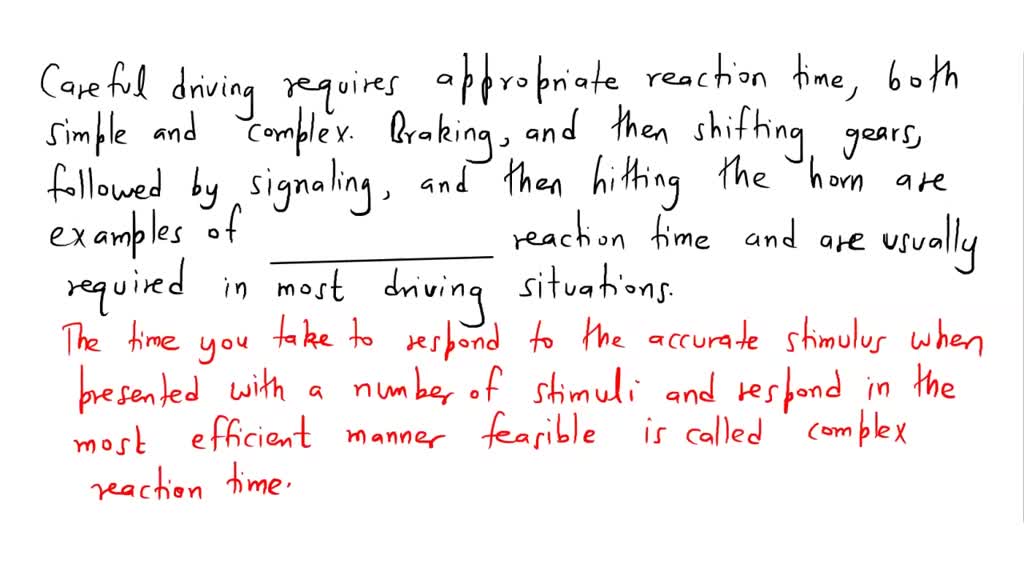 Careful driving requires appropriate reaction time, both
simple and complex. Braking, and then shifting gears,
followed by signaling, and then hitting the horn are
examples of __________ reaction time and are usually
required in most driving situations.
The time you take to respond to the accurate stimulus when
presented with a number of stimuli and respond in the
most efficient manner feasible is called complex
reaction time.